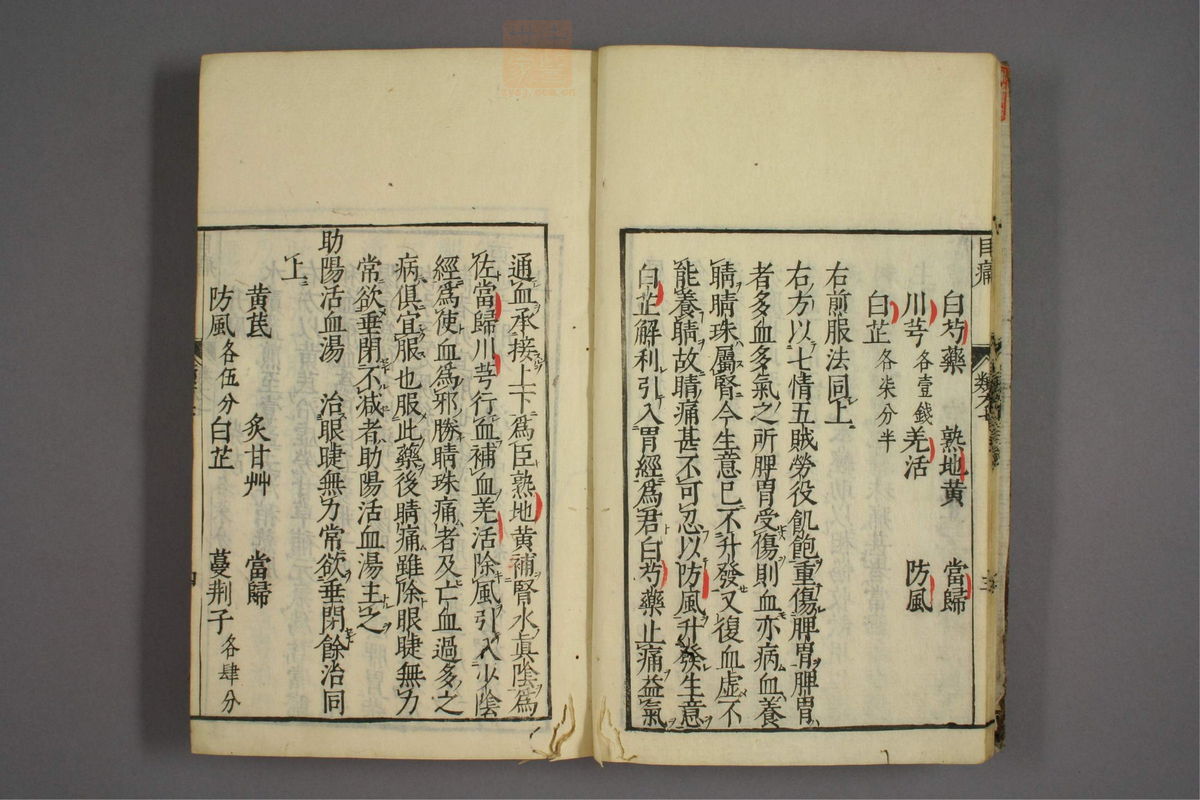 目痛
類八
三
白芍藥 熟地黃 當歸
川芎各壹錢 羌活 防風
白芷各柒分半
右煎服法同上
右方以七情五賊勞役飢飽重傷脾胃脾胃
者多血多氣之所脾胃受傷則血亦病血養
睛睛珠屬腎今生意已不升發又復血虛不
能養睛故睛痛甚不可忍以防風升發生意
白芷解利引入胃經爲君白芍藥止痛益氣
通血承接上下爲臣熟地黃補腎水眞陰爲
佐當歸川芎行血補血羌活除風引入少陰
經爲使血爲邪勝睛珠痛者及亡血過多之
病俱宜服也服此藥後睛痛雖除眼睫無力
常欲垂閉不减者助陽活血湯主之
助陽活血湯 治眼睫無力常欲垂閉餘治同
上
黃芪 炙甘艸 當歸
防風各伍分 白芷 蔓荆子各肆分
四